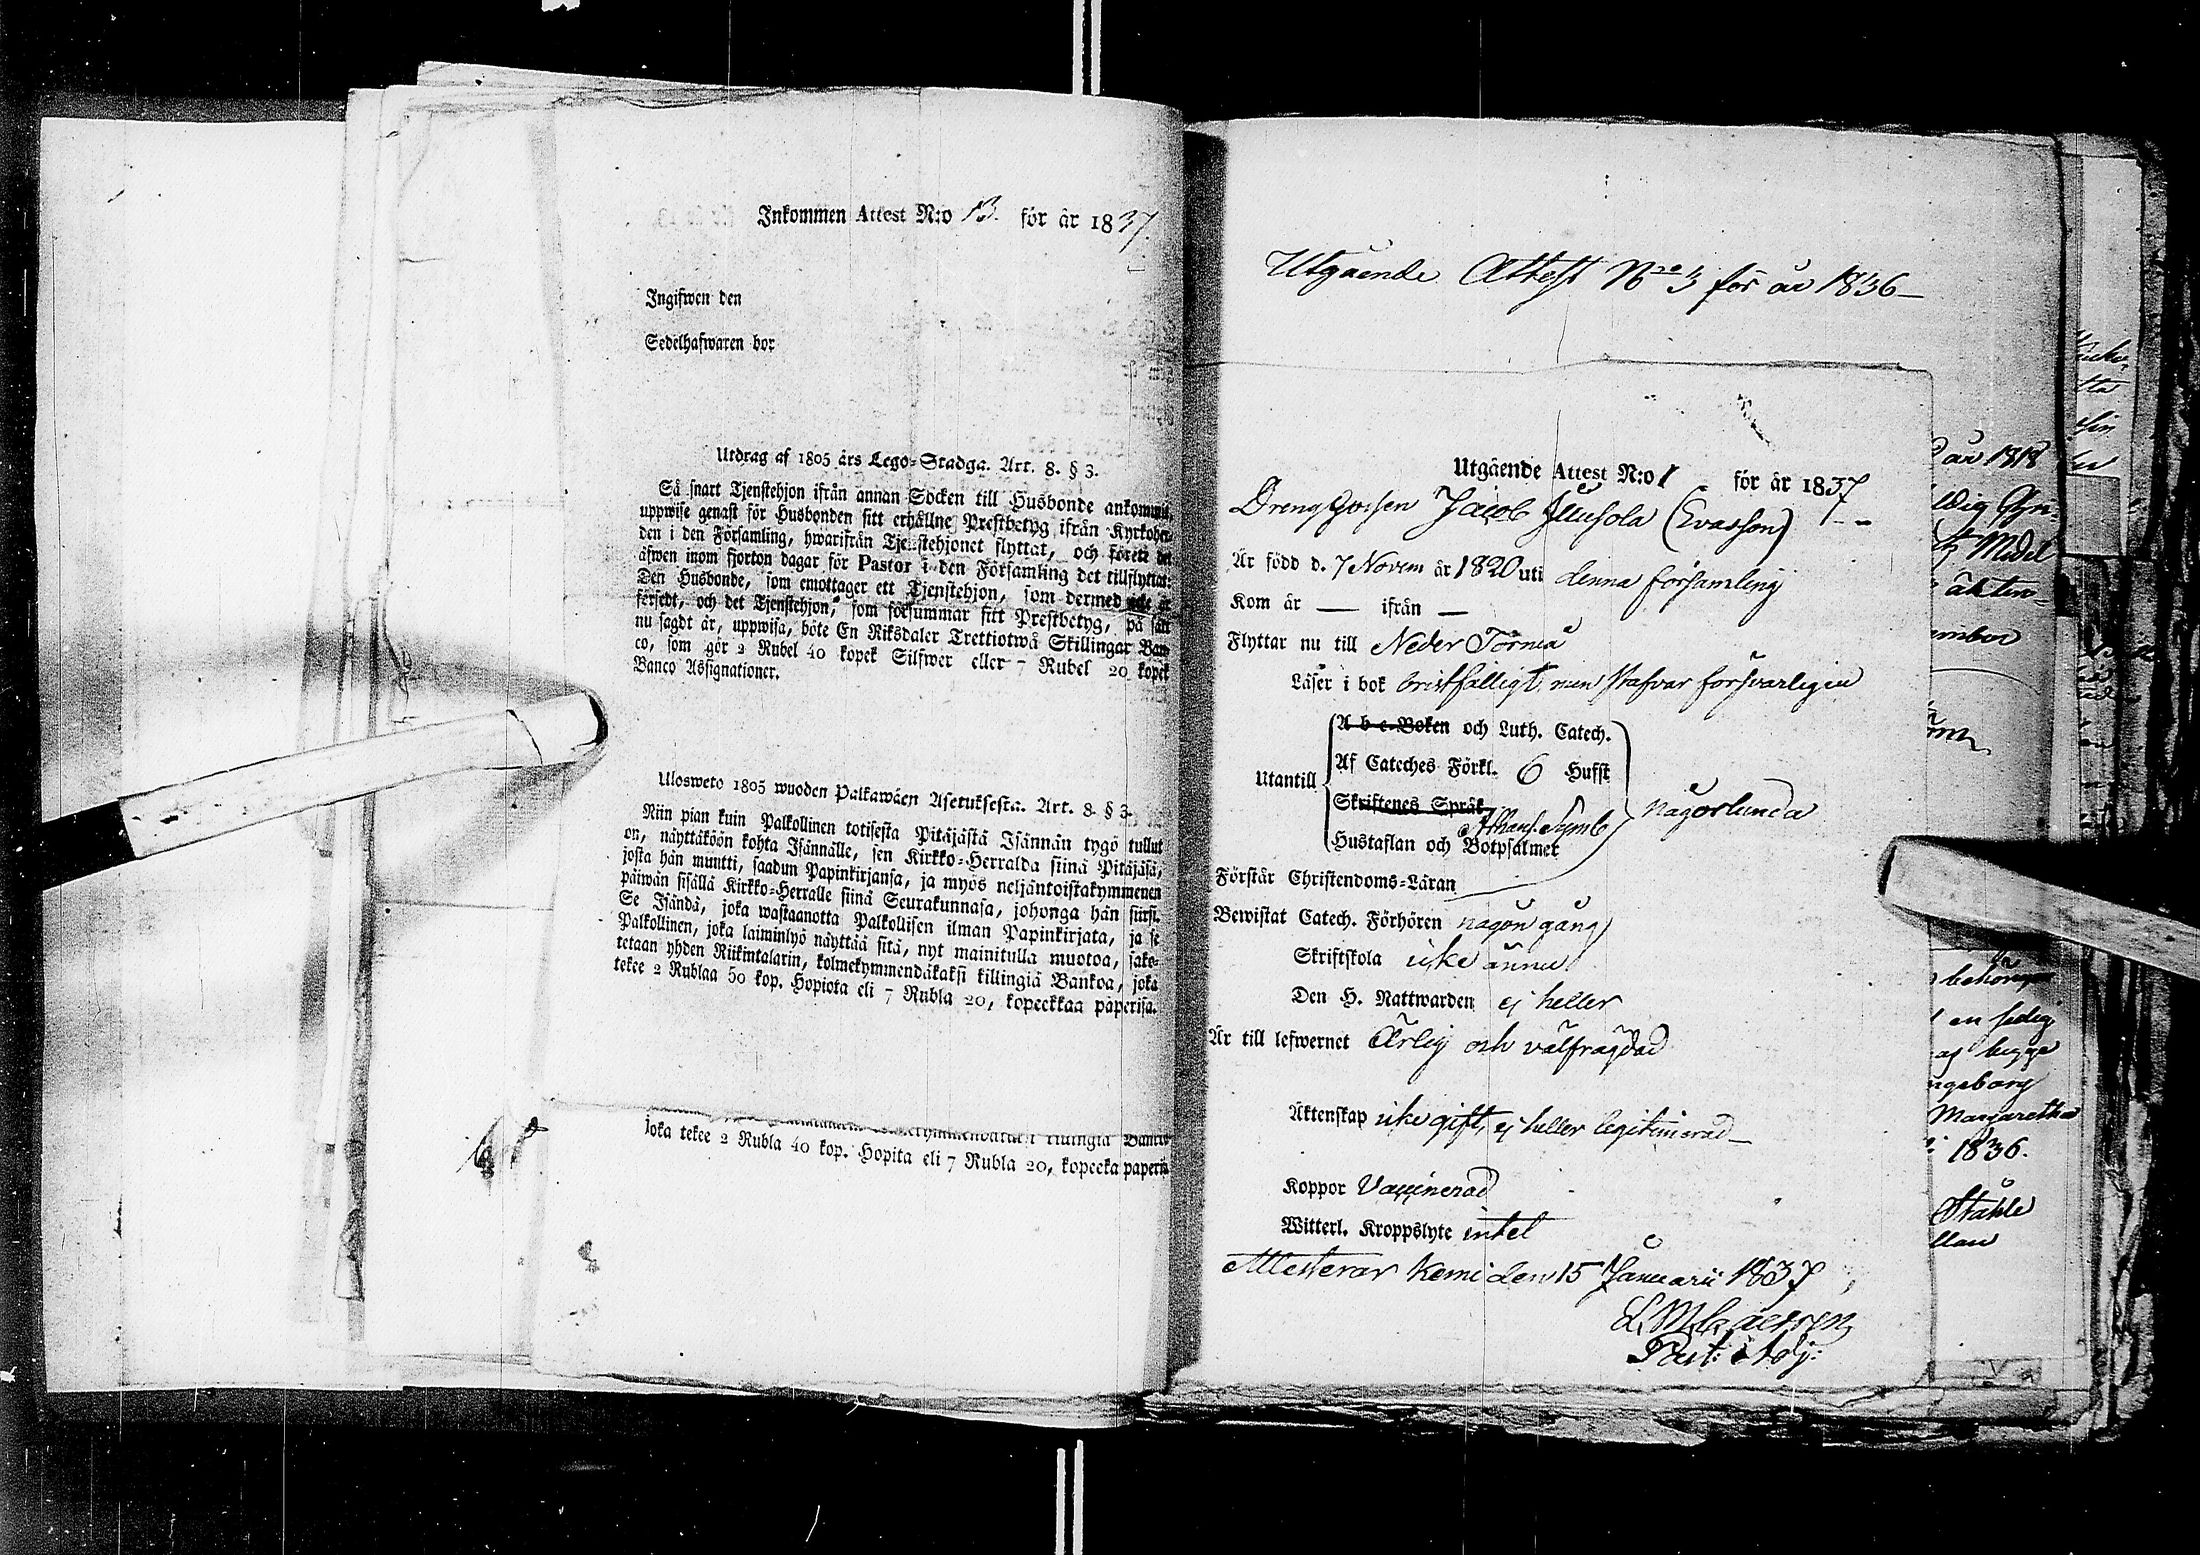 Inkommen Attest N:o 13. för år 1837.
Ingifwen den
Sedelhafwaren bor
Utdrag af 1805 års Lego-Stadga. Art. 8. § 3.
Så snart Tjenstehjon ifrån annan Socken till Husbonde ankommit,
uppwise genast för Husbonden sitt erhållne Prestbetyg ifrån Kyrkoher-
den i den Församling, hwarifrån Tjenstehjonet flyttat, och förete det
äfwen inom fjorton dagar för Pastor i den Församling det tillflyttat.
Den Husbonde, som emottager ett Tjenstehjon, som dermed icke är
försedt, och det Tjenstehjon, som försummar sitt Prestbetyg, på sätt
nu sagdt är, uppwisa, böte En Riksdaler Trettiotwå Skillingar Ban-
co, som gör 2 Rubel 40 kopek Silfwer eller 7 Rubel 20 kopek
Banco Assignationer.
Ulosweto 1805 wuoden Palkawäen Asetuksesta. Art. 8. § 3.
Niin pian kuin Palkollinen totisesta Pitäjästä Isännän tygö tullut
on, näyttäköön kohta Isännälle, sen Kirkko-Herralda siinä Pitäjäsä,
josta hän muutti, saadun Papinkirjansa, ja myös neljäntoistakymmenen
päiwän sisällä Kirkko-Herralle siinä Seurakunnasa, johonga hän siirsi.
Se Isändä, joka wastaanotta Palkollisen ilman Papinkirjata, ja se
Palkollinen, joka laiminlyö näyttää sitä, nyt mainitulla muotoa, sako-
tetaan yhden Riikintalarin, kolmekymmendäkaksi killingiä Bankoa, joka
tekee 2 Rublaa 50 kop. Hopiota eli 7 Rubla 20, kopeekkaa paperisa.
joka tekee 2 Rubla 40 kop. Hopita eli 7 Rubla 20, kopeeka paperis
Utgående Attest N:o 3 för år 1836
Utgående Attest N:o 1 för år 1837
Drenggossen Jacob Juusola (Evasson)
Är född d. 7 Novem år 1820 uti denna församling
Kom år — ifrån —
Flyttar nu till Neder Torneå
Läser i bok bristfälligt, men stafvar försvarligen
A b c-Boken och Luth. Catech.
Af Cateches Förkl. 6 Hufst
Utantill
Skriftenes Språk
Athans. Symb
någorlunda
Hustaflan och Botpsalmer
Förstår Christendoms-Läran
Bewistat Catech. Förhören någon gång
Skriftskola icke ännu
Den H. Nattwarden ej heller
Är till lefwernet Ärlig och välfrägdad
Äktenskap icke gift, ej heller legitimerad
Koppor Vaccinerad
Witterl. Kroppslyte intet
Attesterar Kemi den 15 Januarii 1837
Past: Adj:
år 1818
Margaretha
1836.
Ståhle